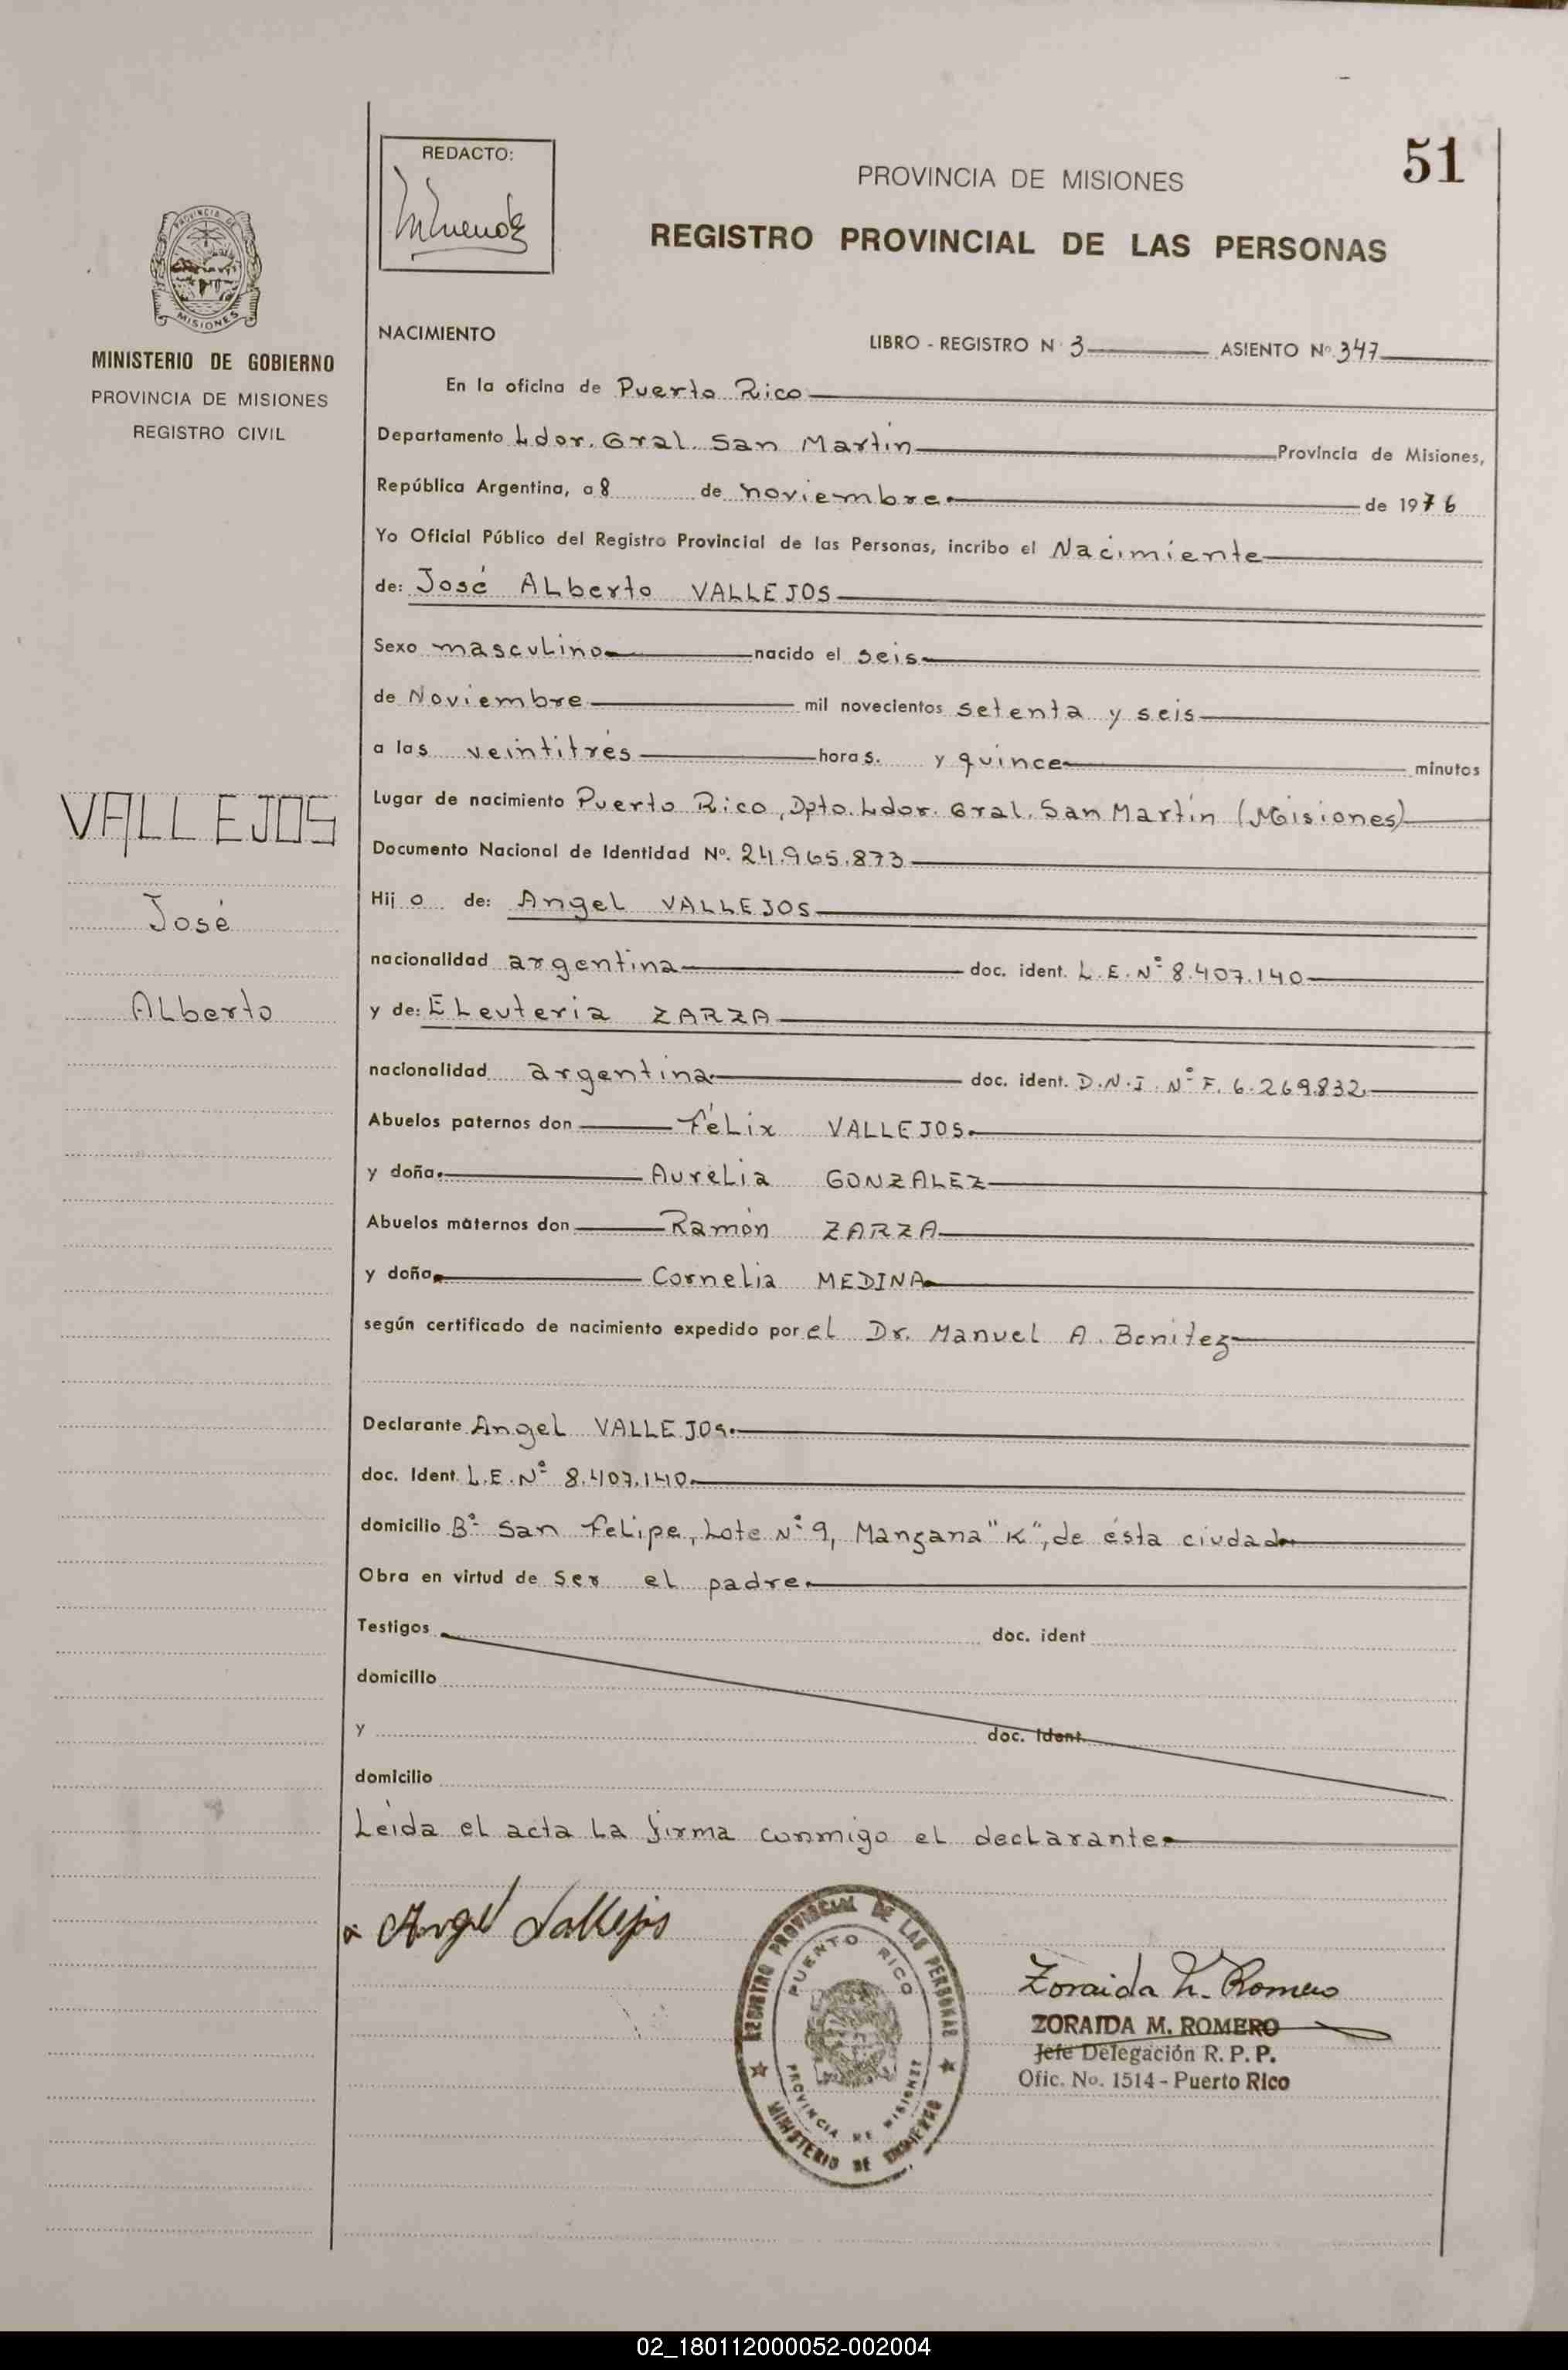 REDACTO:
PROVINCIA DE MISIONES
51
REGISTRO PROVINCIAL DE LAS PERSONAS
PROVINCIA DE
MISIONES
MINISTERIO DE GOBIERNO
PROVINCIA DE MISIONES
REGISTRO CIVIL
VALLEJOS
José
ALberto
NACIMIENTO LIBRO - REGISTRO N 3 ASIENTO Nº 347
En la oficina de Puerto Rico
Departamento Ldor. Gral. San Martín Provincia de Misiones,
República Argentina, a 8 de noviembre. de 1976
Yo Oficial Público del Registro Provincial de las Personas, incribo el Nacimiente
de: José ALberto VALLEJOS
Sexo mascuLino nacido el seis
de Noviembre mil novecientos setenta y seis
a las veintitrés horas. y quince minutos
Lugar de nacimiento Puerto Rico, Dpto. Ldor. Gral. San Martín (Misiones)
Documento Nacional de Identidad Nº. 24.965.873
Hij o de: Angel VALLEJOS
nacionalidad argentina doc. ident. L.E. Nº 8.407.140
y de: ELeuteria ZARZA
nacionalidad argentina doc. ident. D.N.I. Nº F. 6.269.832
Abuelos paternos don FéLix VALLEJOS.
y doña. AureLia GONZALEZ
Abuelos maternos don Ramón ZARZA
y doña CorneLia MEDINA
según certificado de nacimiento expedido por eL Dr. Manuel A. Benitez
Declarante Angel VALLEJOS.
doc. Ident. L.E. Nº 8.407.140.
domicilio Bº San FeLipe, Lote Nº 9, Manzana "K", de ésta ciudad
Obra en virtud de ser eL padre.
Testigos doc. ident
domicilio
y doc. ident.
domicilio
Leída eL acta La firma conmigo eL decLarante
Angel Vallejos
REGISTRO PROVINCIAL DE LAS PERSONAS
PUERTO RICO
PROVINCIA DE MISIONES
MINISTERIO DE GOBIERNO
Zoraida M. Romero
ZORAIDA M. ROMERO
Jefe Delegación R. P. P.
Ofic. No. 1514 - Puerto Rico
02_180112000052-002004